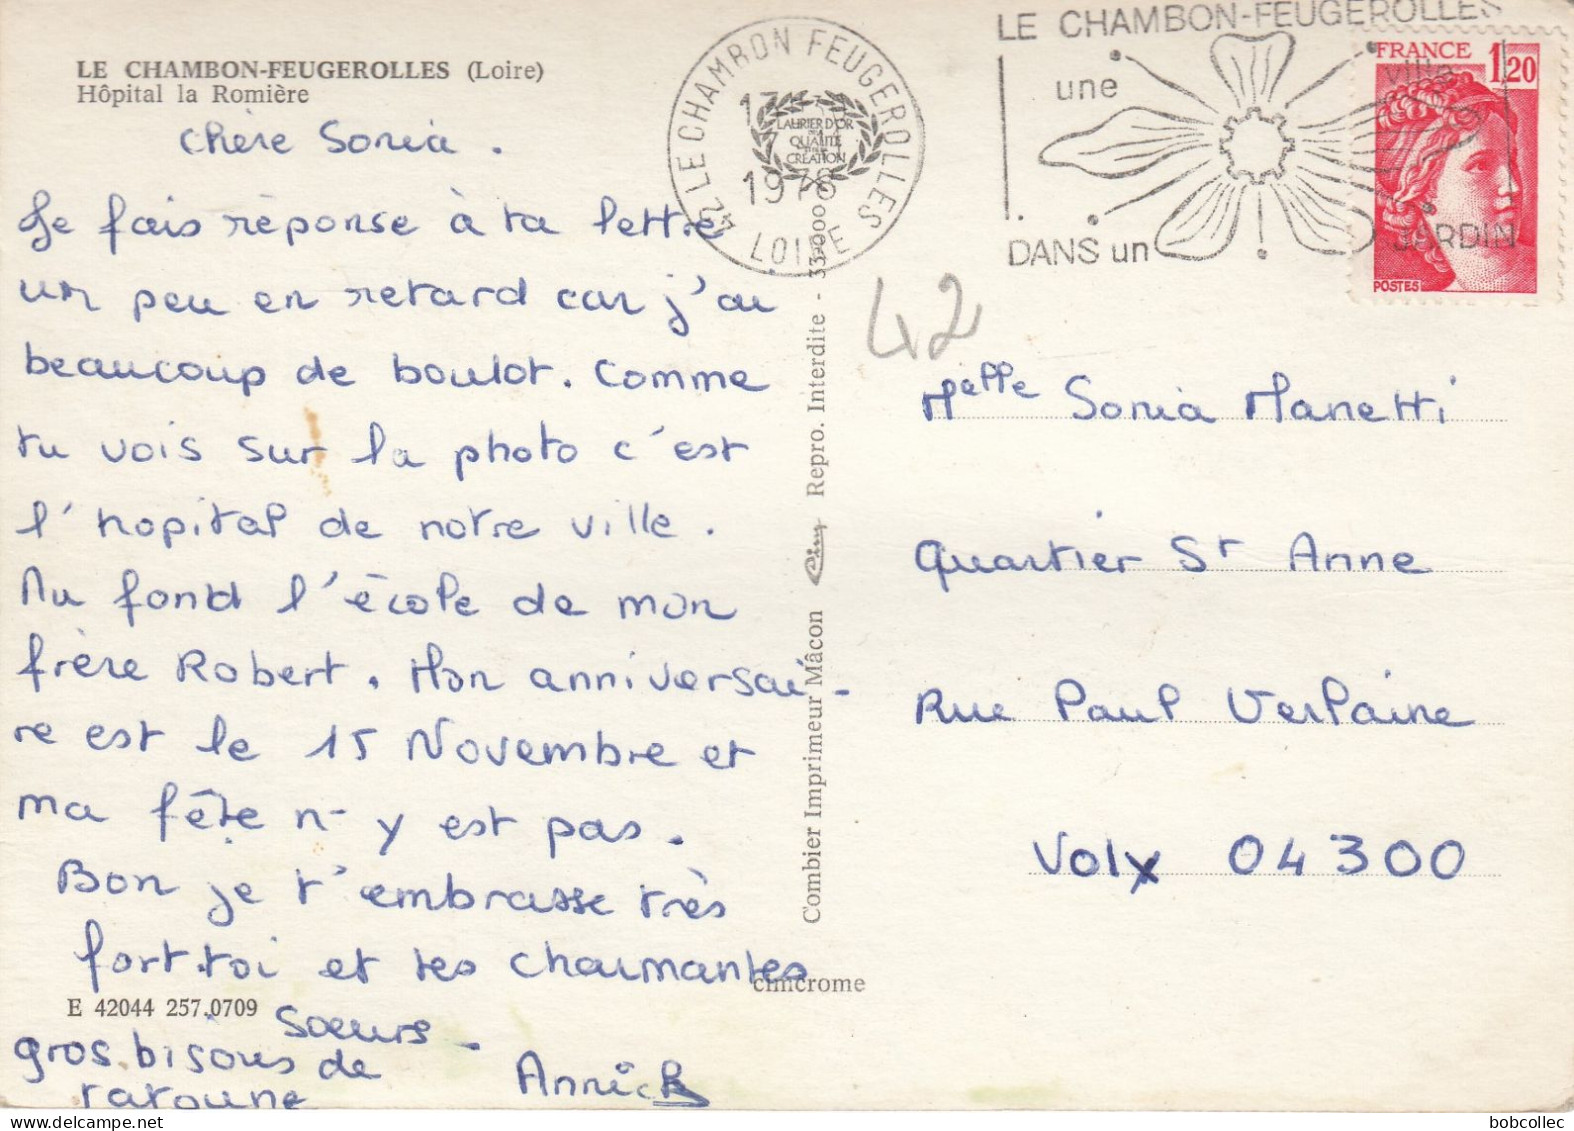 LE CHAMBON-FEUGEROLLES (Loire)
Hôpital la Romière
chère Sonia.
Je fais réponse à ta lettre
un peu en retard car j'ai
beaucoup de boulot. Comme
tu vois sur la photo c'est
l'hopital de notre ville.
Au fond l'école de mon
frère Robert. Mon anniversai-
re est le 15 Novembre et
ma fête n-y est pas.
Bon je t'embrasse très
fort.toi et tes charmantes
soeurs.
gros bisous de
tatoune
Annick
E 42044 257.0709
cimcrome
Combier Imprimeur Mâcon Cim Repro. Interdite - 33-000
LAURIER D'OR
DE LA
QUALITÉ
CRÉATION
42 LE CHAMBON FEUGEROLLES
1978
LOIRE
LE CHAMBON-FEUGEROLLES
une ville
DANS un JARDIN
FRANCE 1,20
POSTES
42
Melle Sonia Manetti
Quartier St Anne
Rue Paul Verlaine
Volx 04300
bobcollec